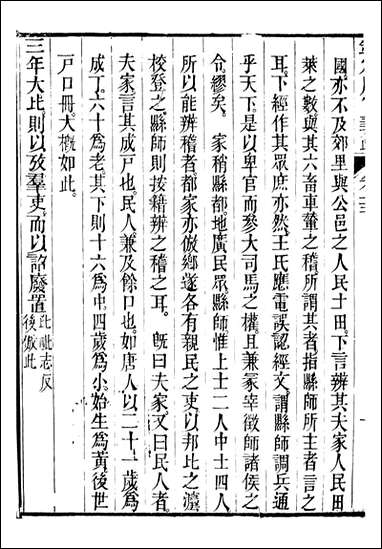 國亦不及郊里與公邑之人民土田。下言辨其夫家人民田
萊之數與其六畜車輦之稽所謂其者指縣師所主者言之
耳。下經作其眾庶亦然。王氏應電誤認經文謂縣師調兵通
乎天下。是以卑官而參大司馬之權。且兼冢宰徵師諸侯之
令繆矣。 家稍縣都。地廣民眾縣師惟上士二人中士四人
所以能辨稽者都家亦倣鄉遂各有親民之吏以邦比之灋
校登之縣師則按籍辨之稽之耳。 旣曰夫家又曰民人者
夫家言其成戸也。民人兼及餘口也。如唐人以二十一歲爲
成丁。六十爲老。其下則十六爲中四歲爲小。始生爲黃後世
戸口冊。大槪如此。
三年大比。則以攷羣吏。而以詔廢置 比毗志反後倣此